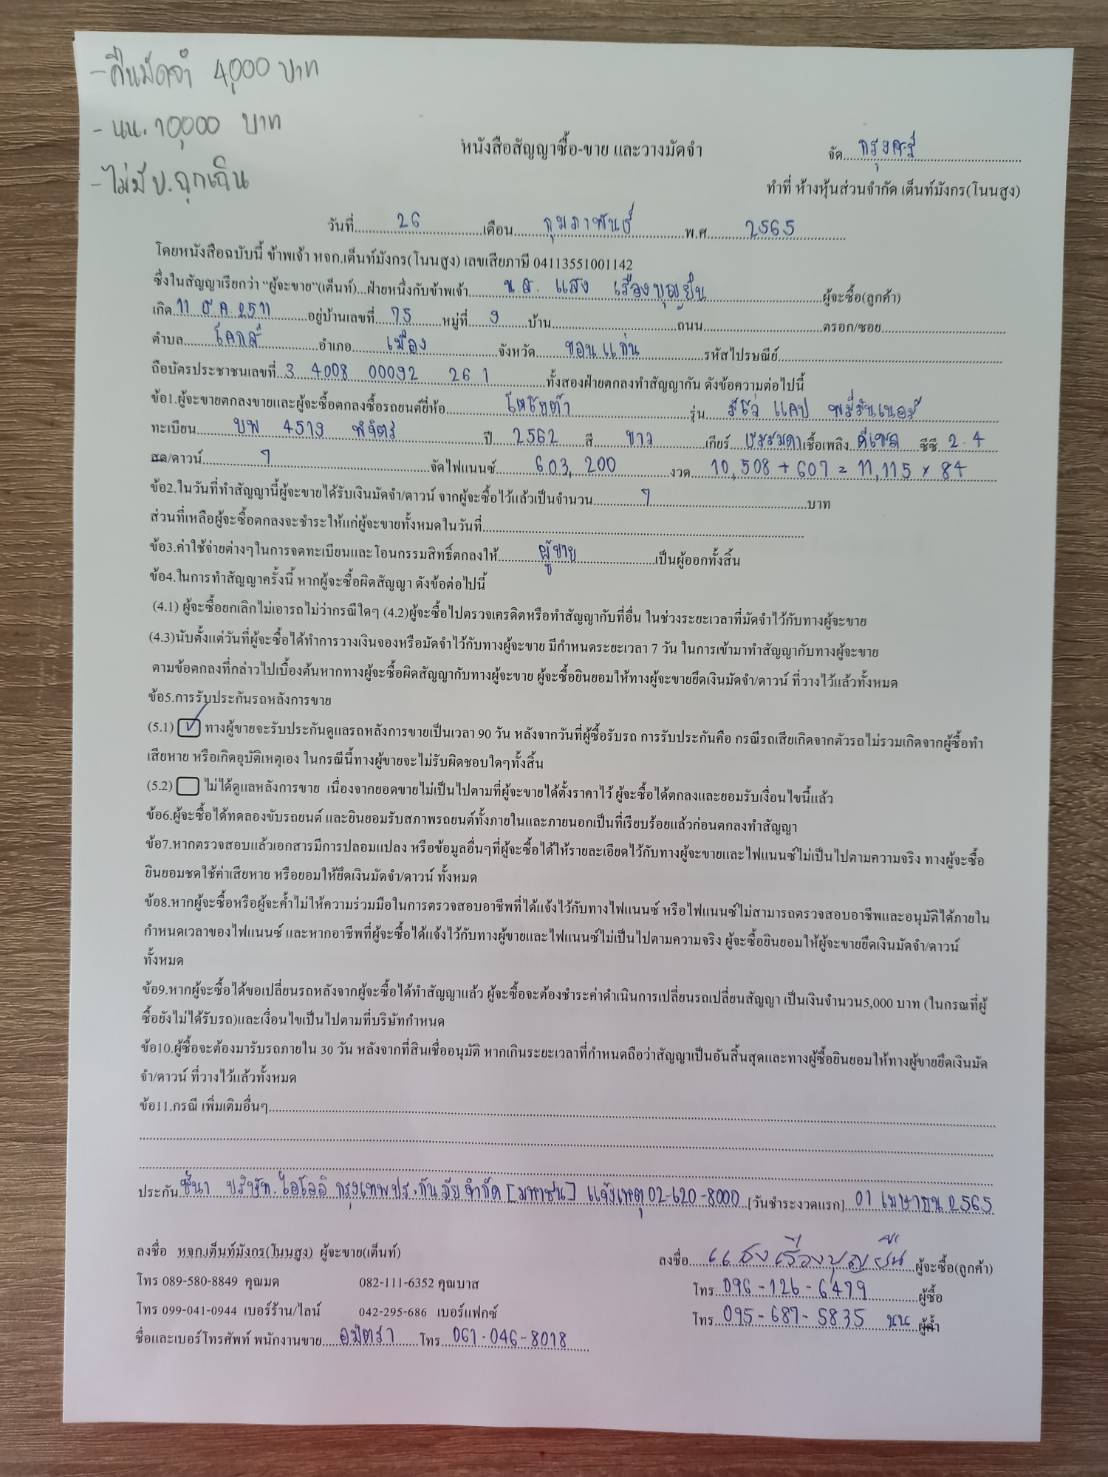 -คืนมัดจำ 4,000 บาท
- นน. 10,000 บาท
-ไม่มี บ.ฉุกเฉิน
หนังสือสัญญาซื้อ-ขาย และวางมัดจำ
จัด กรุงศรี
ทำที่ ห้างหุ้นส่วนจำกัด เต็นท์มังกร(โนนสูง)
วันที่ 26 เดือน กุมภาพันธ์ พ.ศ. 2565
โดยหนังสือฉบับนี้ ข้าพเจ้า หจก.เต็นท์มังกร(โนนสูง) เลขเสียภาษี 04113551001142
ซึ่งในสัญญาเรียกว่า "ผู้จะขาย"(เต็นท์)...ฝ่ายหนึ่งกับข้าพเจ้า น.ส. แสง เรืองบุญยืน ผู้จะซื้อ(ลูกค้า)
เกิด 11 ต.ค. 2511 อยู่บ้านเลขที่ 75 หมู่ที่ 9 บ้าน ถนน ตรอก/ซอย
ตำบล โคกสี อำเภอ เมือง จังหวัด ขอนแก่น รหัสไปรษณีย์
ถือบัตรประชาชนเลขที่ 3 4008 00092 26 1 ทั้งสองฝ่ายตกลงทำสัญญากัน ดังข้อความต่อไปนี้
ข้อ1.ผู้จะขายตกลงขายและผู้จะซื้อตกลงซื้อรถยนต์ยี่ห้อ โตโยต้า รุ่น รีโว่ แคป พรีรันเนอร์
ทะเบียน บพ 4519 พิจิตร ปี 2562 สี ขาว เกียร์ ธรรมดา เชื้อเพลิง ดีเซล ซีซี 2.4
สด/ดาวน์ 7 จัดไฟแนนซ์ 603,200 งวด 10,508 + 607 = 11,115 x 84
ข้อ2.ในวันที่ทำสัญญานี้ผู้จะขายได้รับเงินมัดจำ/ดาวน์ จากผู้จะซื้อไว้แล้วเป็นจำนวน 7 บาท
ส่วนที่เหลือผู้จะซื้อตกลงจะชำระให้แก่ผู้จะขายทั้งหมดในวันที่
ข้อ3.ค่าใช้จ่ายต่างๆในการจดทะเบียนและโอนกรรมสิทธิ์ตกลงให้ ผู้ขาย เป็นผู้ออกทั้งสิ้น
ข้อ4.ในการทำสัญญาครั้งนี้ หากผู้จะซื้อผิดสัญญา ดังข้อต่อไปนี้
(4.1) ผู้จะซื้อยกเลิกไม่เอารถไม่ว่ากรณีใดๆ (4.2)ผู้จะซื้อไปตรวจเครดิตหรือทำสัญญากับที่อื่น ในช่วงระยะเวลาที่มัดจำไว้กับทางผู้จะขาย
(4.3)นับตั้งแต่วันที่ผู้จะซื้อได้ทำการวางเงินจองหรือมัดจำไว้กับทางผู้จะขาย มีกำหนดระยะเวลา 7 วัน ในการเข้ามาทำสัญญากับทางผู้จะขาย
ตามข้อตกลงที่กล่าวไปเบื้องต้นหากทางผู้จะซื้อผิดสัญญากับทางผู้จะขาย ผู้จะซื้อยินยอมให้ทางผู้จะขายยึดเงินมัดจำ/ดาวน์ ที่วางไว้แล้วทั้งหมด
ข้อ5.การรับประกันรถหลังการขาย
(5.1) ทางผู้ขายจะรับประกันดูแลรถหลังการขายเป็นเวลา 90 วัน หลังจากวันที่ผู้ซื้อรับรถ การรับประกันคือ กรณีรถเสียเกิดจากตัวรถไม่รวมเกิดจากผู้ซื้อทำ
เสียหาย หรือเกิดอุบัติเหตุเอง ในกรณีนี้ทางผู้ขายจะไม่รับผิดชอบใดๆทั้งสิ้น
(5.2) ไม่ได้ดูแลหลังการขาย เนื่องจากยอดขายไม่เป็นไปตามที่ผู้จะขายได้ตั้งราคาไว้ ผู้จะซื้อได้ตกลงและยอมรับเงื่อนไขนี้แล้ว
ข้อ6.ผู้จะซื้อได้ทดลองขับรถยนต์ และยินยอมรับสภาพรถยนต์ทั้งภายในและภายนอกเป็นที่เรียบร้อยแล้วก่อนตกลงทำสัญญา
ข้อ7.หากตรวจสอบแล้วเอกสารมีการปลอมแปลง หรือข้อมูลอื่นๆที่ผู้จะซื้อได้ให้รายละเอียดไว้กับทางผู้จะขายและไฟแนนซ์ไม่เป็นไปตามความจริง ทางผู้จะซื้อ
ยินยอมชดใช้ค่าเสียหาย หรือยอมให้ยึดเงินมัดจำ/ดาวน์ ทั้งหมด
ข้อ8.หากผู้จะซื้อหรือผู้จะค้ำไม่ให้ความร่วมมือในการตรวจสอบอาชีพที่ได้แจ้งไว้กับทางไฟแนนซ์ หรือไฟแนนซ์ไม่สามารถตรวจสอบอาชีพและอนุมัติได้ภายใน
กำหนดเวลาของไฟแนนซ์ และหากอาชีพที่ผู้จะซื้อได้แจ้งไว้กับทางผู้ขายและไฟแนนซ์ไม่เป็นไปตามความจริง ผู้จะซื้อยินยอมให้ผู้จะขายยึดเงินมัดจำ/ดาวน์
ทั้งหมด
ข้อ9.หากผู้จะซื้อได้ขอเปลี่ยนรถหลังจากผู้จะซื้อได้ทำสัญญาแล้ว ผู้จะซื้อจะต้องชำระค่าดำเนินการเปลี่ยนรถเปลี่ยนสัญญา เป็นเงินจำนวน5,000 บาท (ในกรณที่ผู้
ซื้อยังไม่ได้รับรถ)และเงื่อนไขเป็นไปตามที่บริษัทกำหนด
ข้อ10.ผู้ซื้อจะต้องมารับรถภายใน 30 วัน หลังจากที่สินเชื่ออนุมัติ หากเกินระยะเวลาที่กำหนดถือว่าสัญญาเป็นอันสิ้นสุดและทางผู้ซื้อยินยอมให้ทางผู้ขายยึดเงินมัด
จำ/ดาวน์ ที่วางไว้แล้วทั้งหมด
ข้อ11.กรณี เพิ่มเติมอื่นๆ
ประกัน ชั้น1 บริษัท. ไอโออิ กรุงเทพประกันภัย จำกัด [มหาชน] แจ้งเหตุ 02-620-8000 [วันชำระงวดแรก] 01 เมษายน 2565
ลงชื่อ หจก.เต็นท์มังกร(โนนสูง) ผู้จะขาย(เต็นท์)
ลงชื่อ แสง เรืองบุญยืน ผู้จะซื้อ(ลูกค้า)
โทร 089-580-8849 คุณมด 082-111-6352 คุณบาส
โทร 096-126-6479 ผู้ซื้อ
โทร 099-041-0944 เบอร์ร้าน/ไลน์ 042-295-686 เบอร์แฟกซ์
โทร 095-687-5835 นน ผู้ค้ำ
ชื่อและเบอร์โทรศัพท์ พนักงานขาย อมิตรา โทร 061-046-8018